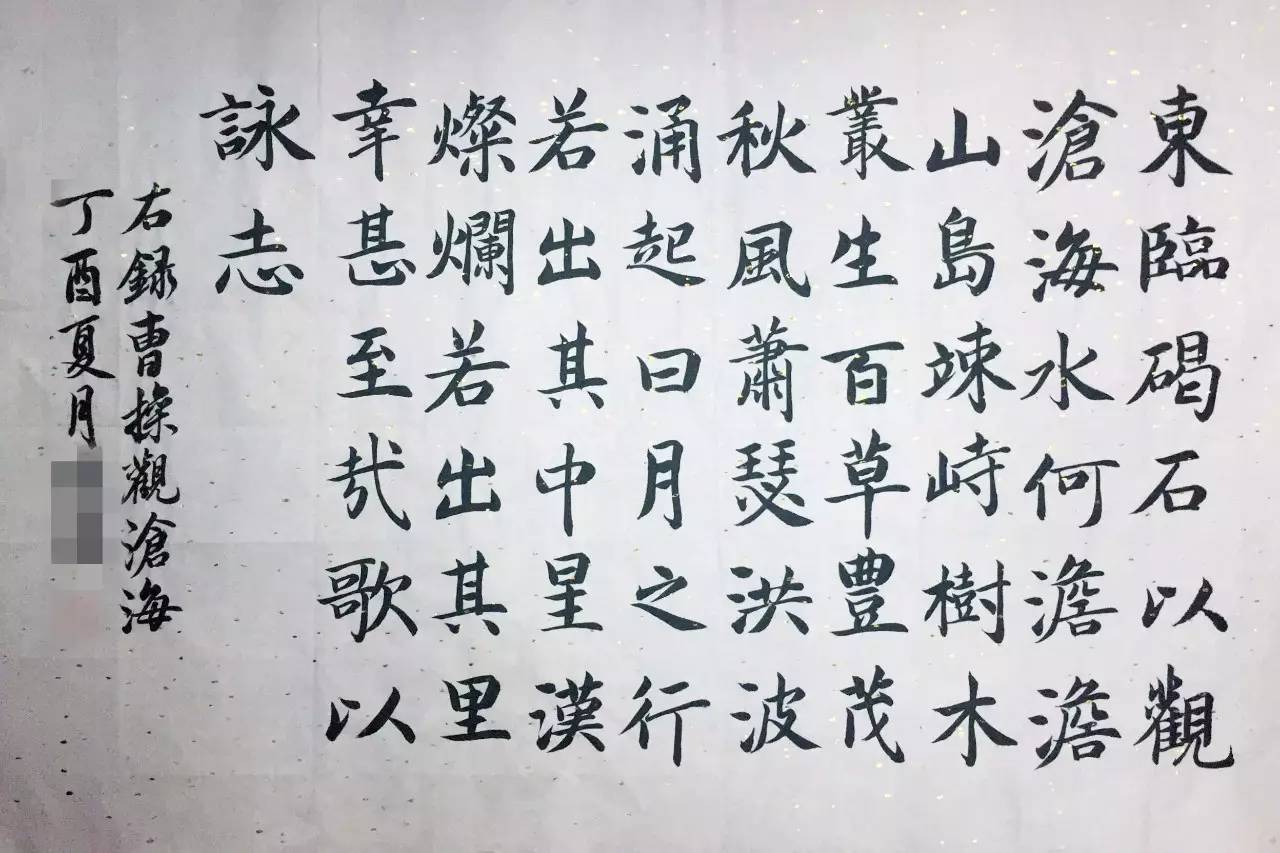 東臨碣石以觀
滄海水何澹澹
山島竦峙樹木
叢生百草豊茂
秋風蕭瑟洪波
涌起日月之行
若出其中星漢
燦爛若出其里
幸甚至哉歌以
詠志
右録曹操觀滄海
丁酉夏月